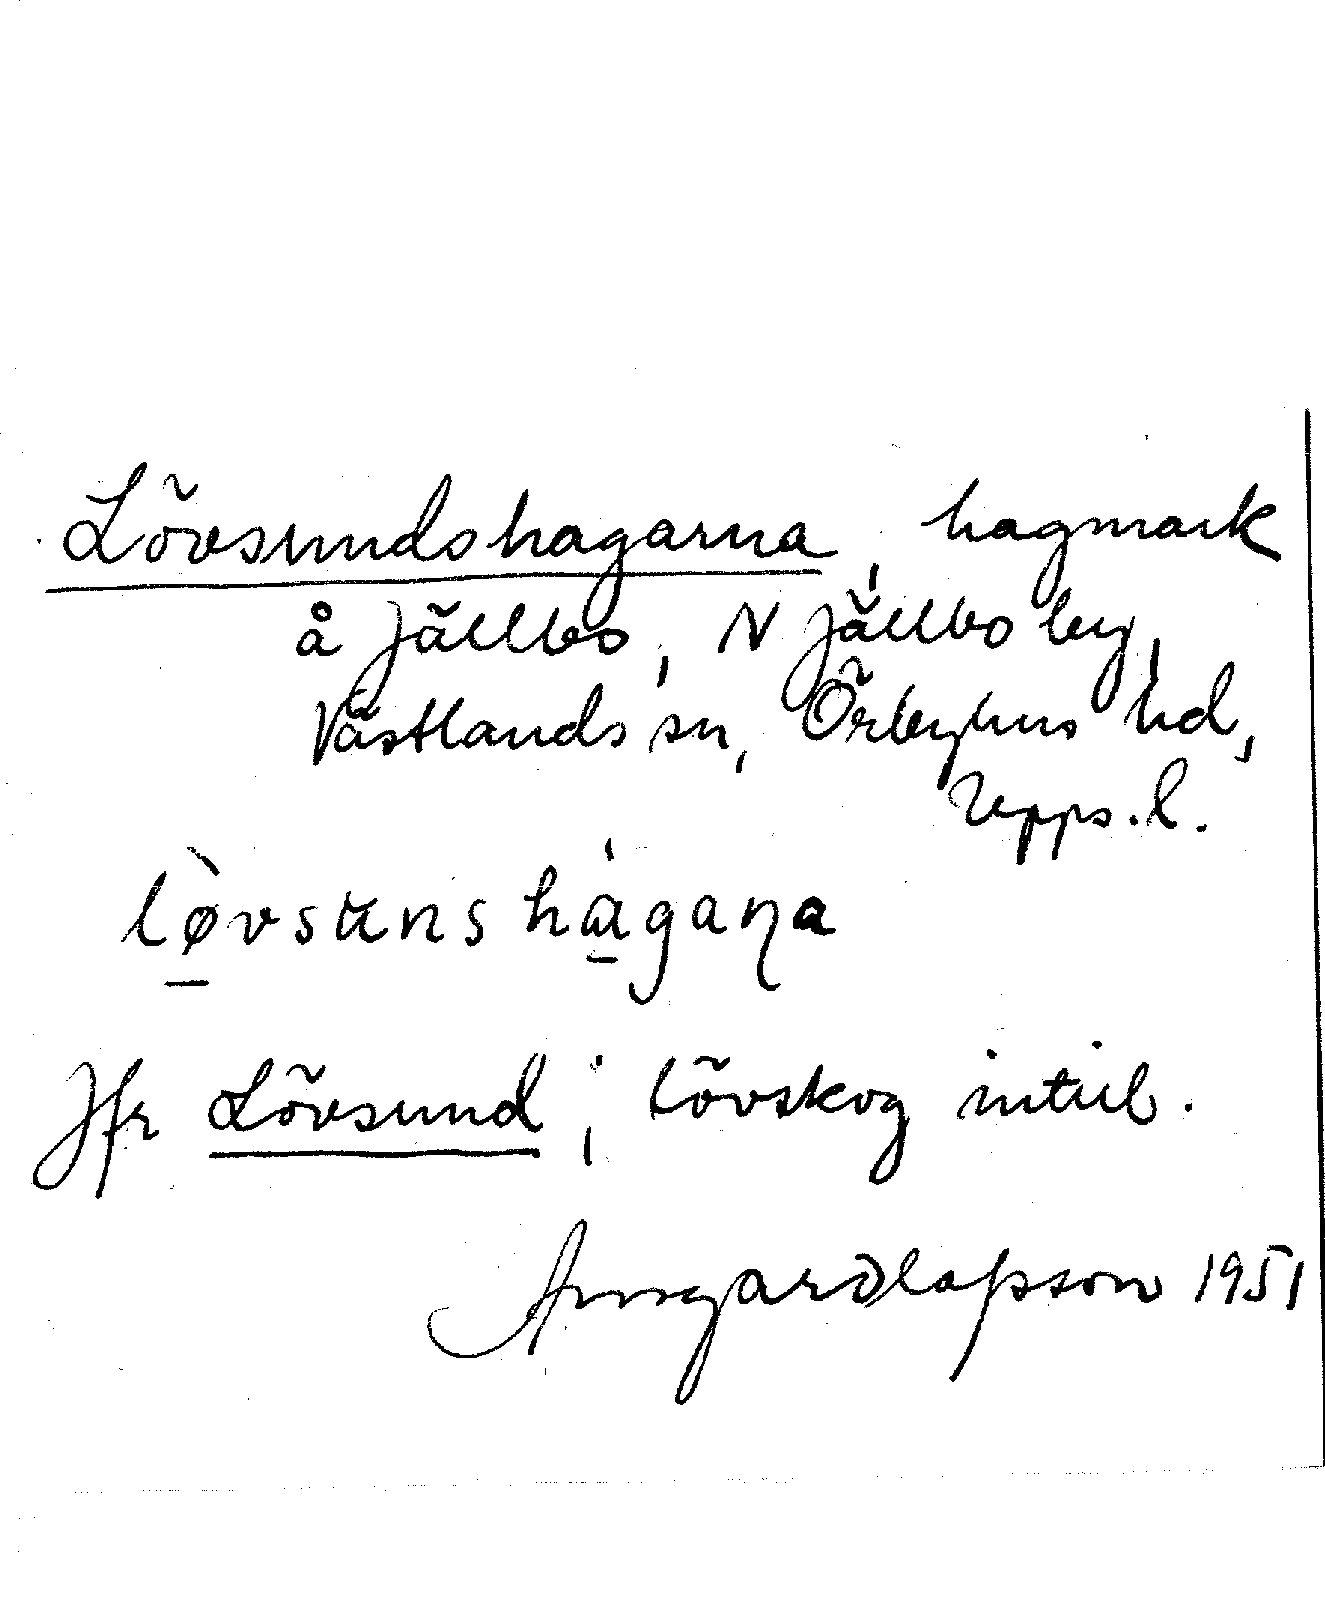 Lövsundshagarna, hagmark
å Jällbo, N Jällbo by,
Västlands sn, Örbyhus hd,
Upps. l.
lø̀vsunshágaɳa
Jfr Lövsund; lövskog intill.
Olafsson 1951